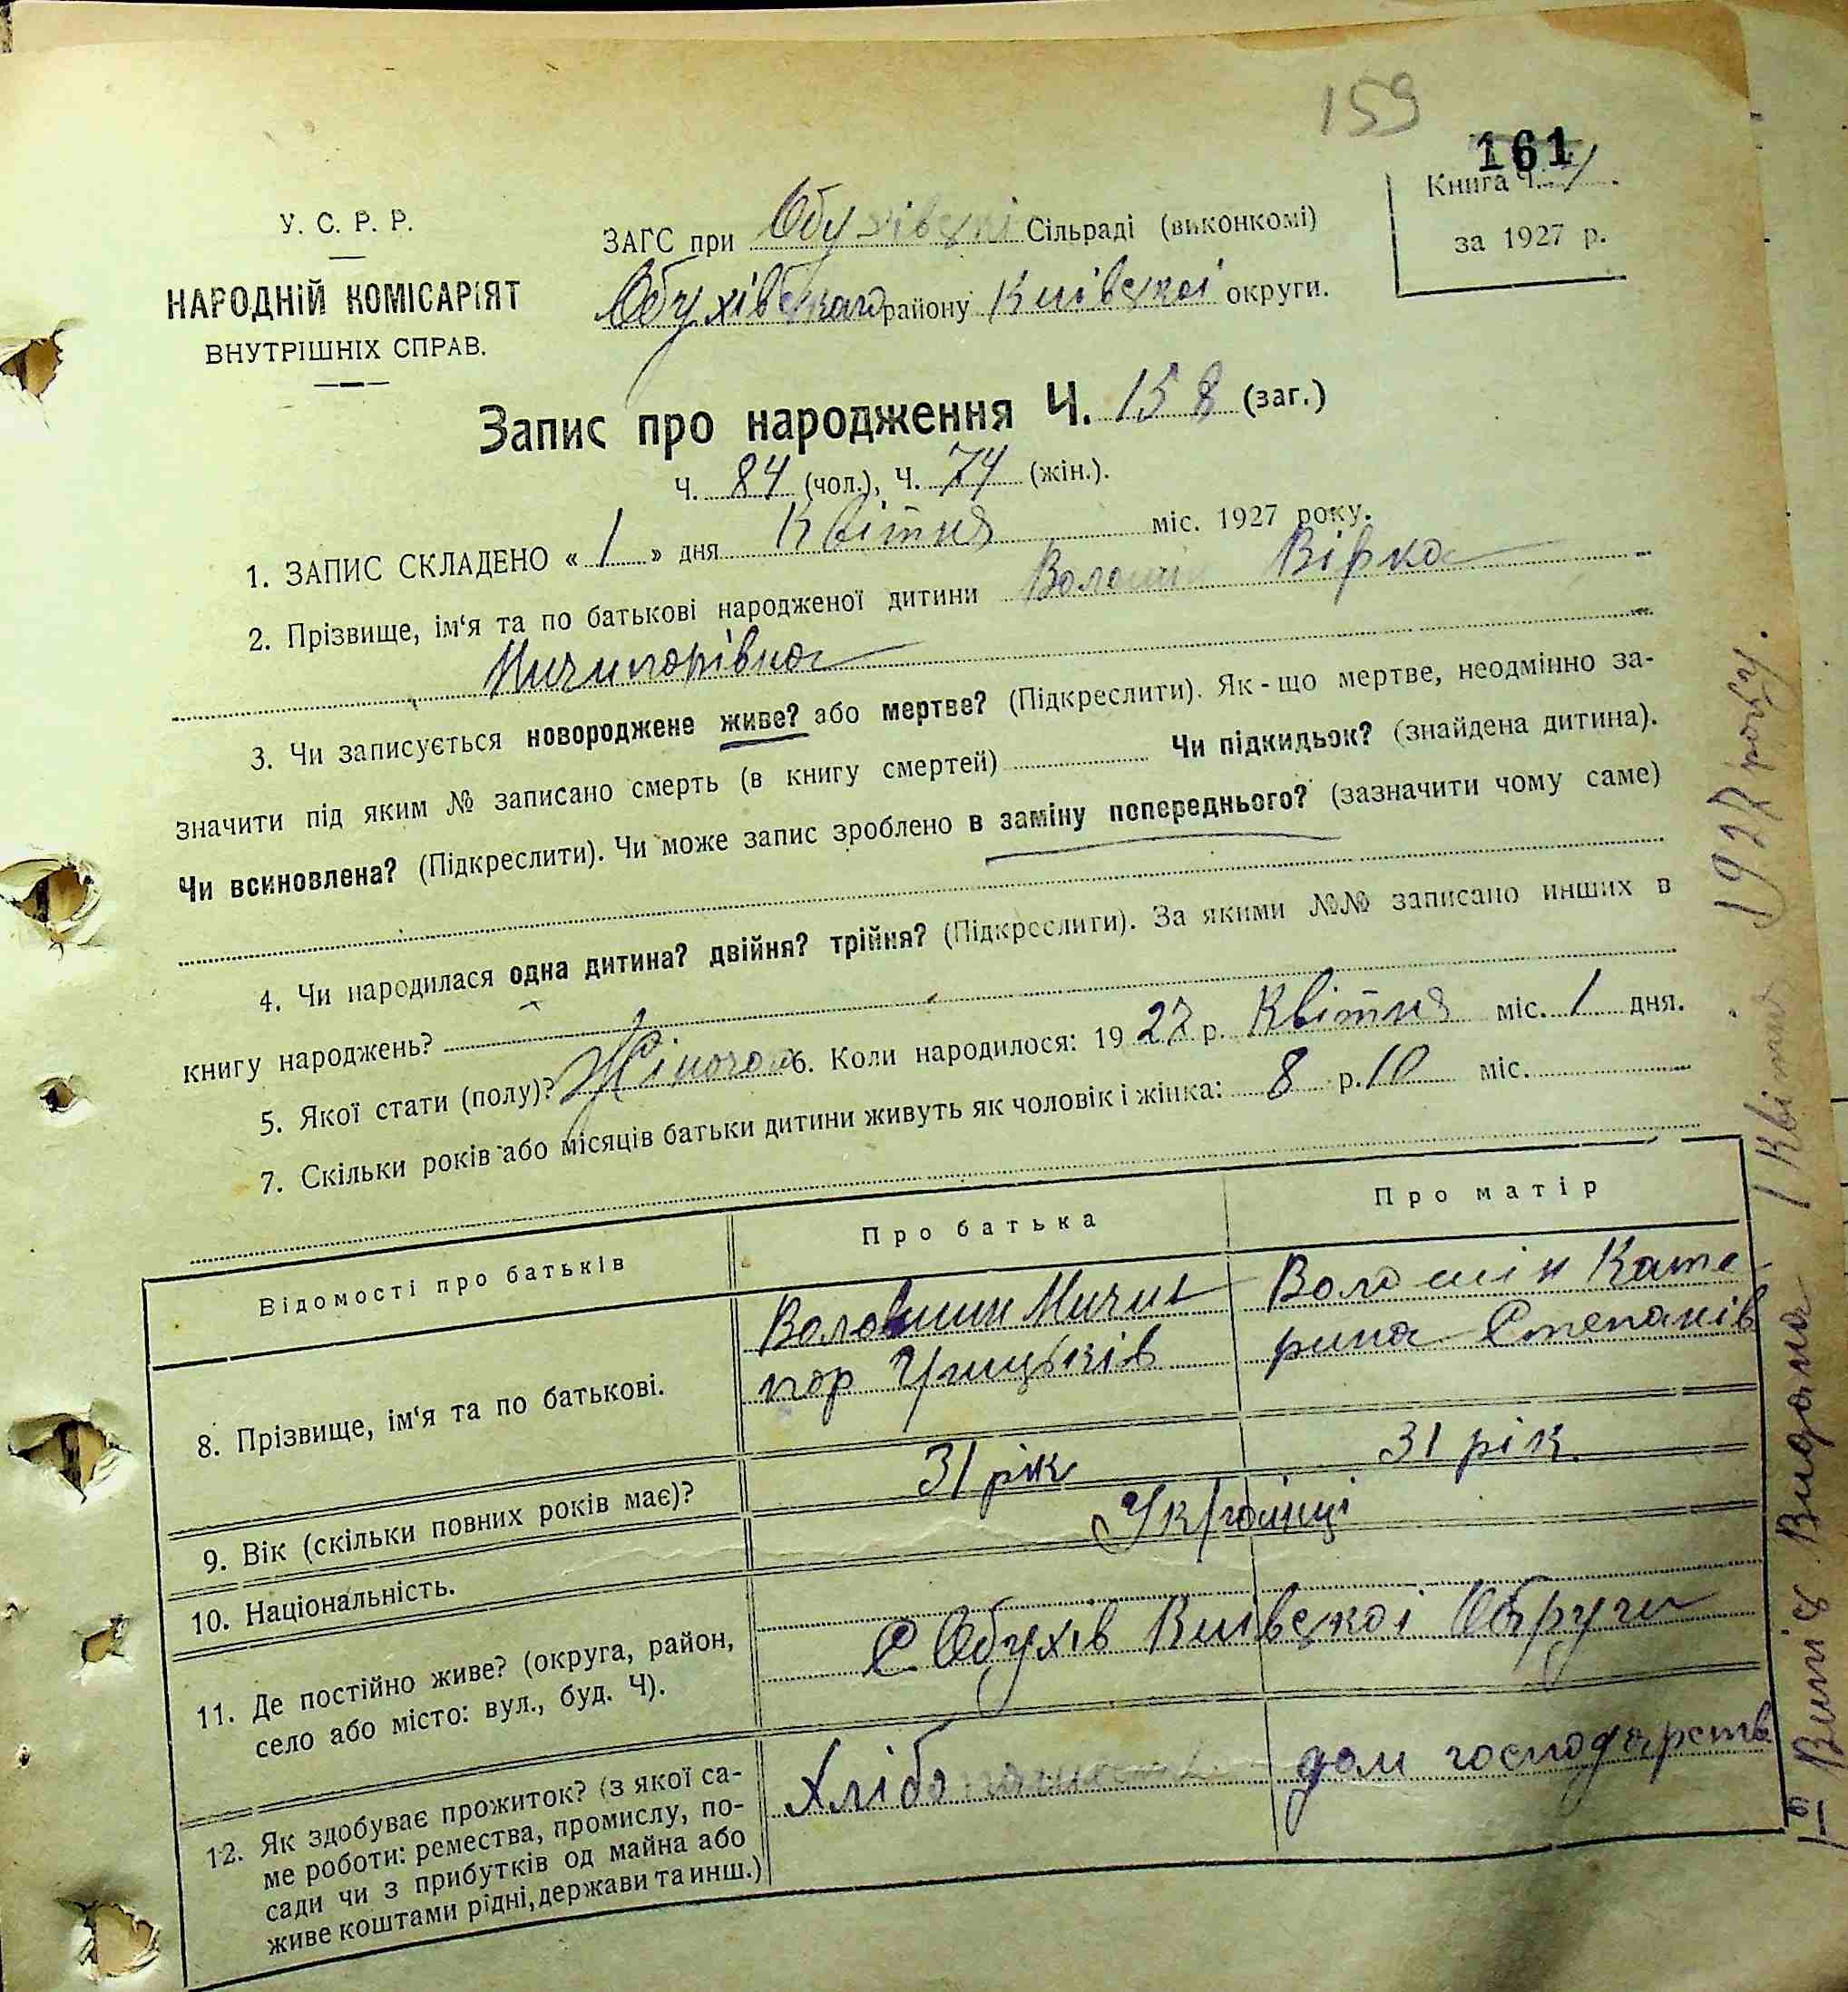 159
161
Книга Ч. 1.
за 1927 р.
У. С. Р. Р.
НАРОДНІЙ КОМІСАРІЯТ
ВНУТРІШНІХ СПРАВ.
ЗАГС при Обухівські Сільраді (виконкомі)
Обухівського району Київської округи.
Запис про народження Ч. 158 (заг.)
Ч. 84 (чол.), Ч. 74 (жін.).
1. ЗАПИС СКЛАДЕНО « 1 » дня Квітня міс. 1927 року.
2. Прізвище, ім'я та по батькові народженої дитини Волошін Вірка
Ничипорівна
3. Чи записується новороджене живе? або мертве? (Підкреслити). Як-що мертве, неодмінно за-
значити під яким № записано смерть (в книгу смертей) Чи підкидьок? (знайдена дитина).
Чи всиновлена? (Підкреслити). Чи може запис зроблено в заміну попереднього? (зазначити чому саме)
4. Чи народилася одна дитина? двійня? трійня? (Підкреслити). За якими №№ записано инших в
книгу народжень?
5. Якої стати (полу)? Жіночоі 6. Коли народилося: 1927 р. Квітня міс. 1 дня.
7. Скільки років або місяців батьки дитини живуть як чоловік і жінка: 8 р. 10 міс.
Відомості про батьків Про батька Про матір
8. Прізвище, ім'я та по батькові.
Воловшин Ничи
пор Грицьків
Волошін Кате-
рина Степанів
9. Вік (скільки повних років має)? 31 рік 31 рік.
10. Національність. Українці
11. Де постійно живе? (округа, район,
село або місто: вул., буд. Ч).
С Обухів Київської Округи
12. Як здобуває прожиток? (з якої са-
ме роботи: ремества, промислу, по-
сади чи з прибутків од майна або
живе коштами рідні, держави та инш.)
Хлібо
дом господарств
Витяг Видана 1 Квітня 1927 року.